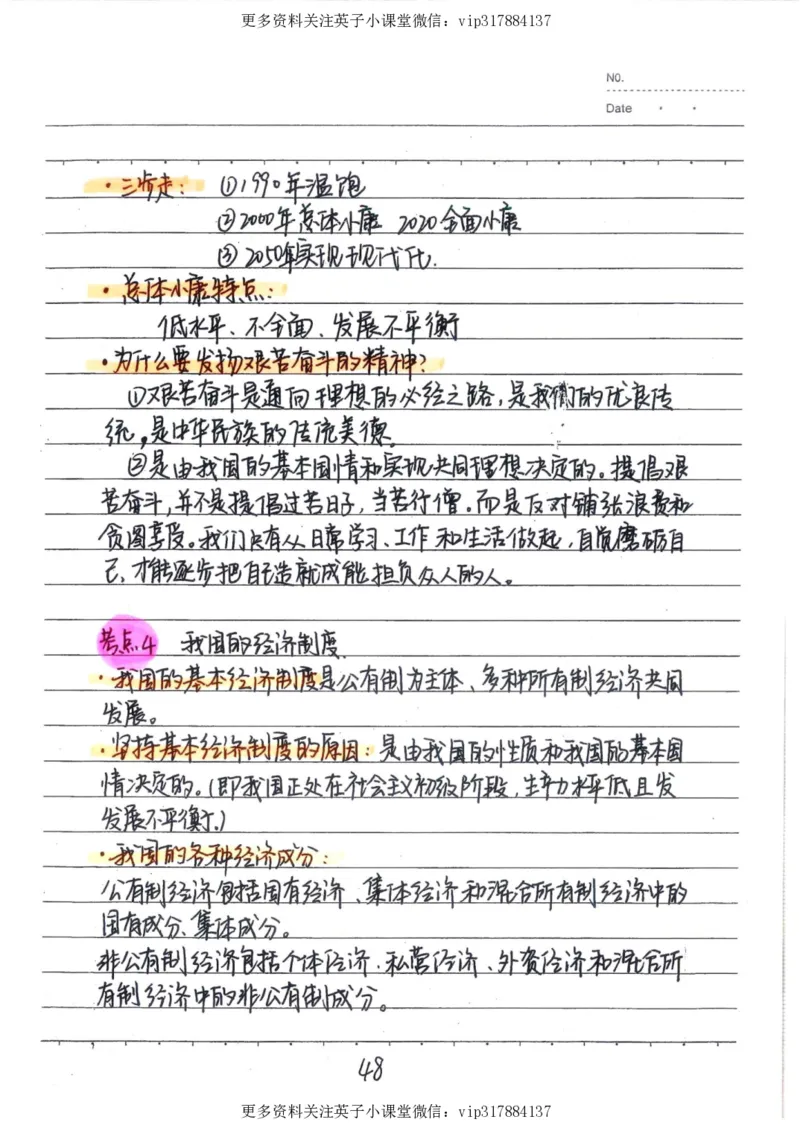 更多资料关注英子小课堂微信：vip317884137
NO.
Date
·三步走：①1990年温饱
②2000年总体小康 2020全面小康
③2050年实现现代化.
·总体小康特点：
低水平、不全面、发展不平衡
·为什么要发扬艰苦奋斗的精神？
①艰苦奋斗是通向理想的必经之路，是我们的优良传
统，是中华民族的传统美德.
②是由我国的基本国情和实现共同理想决定的。提倡艰
苦奋斗，并不是提倡过苦日子，当苦行僧。而是反对铺张浪费和
贪图享受。我们只有从日常学习、工作和生活做起，自觉磨砺自
己，才能逐步把自己造就成能担负众人的人。
考点4 我国的经济制度
·我国的基本经济制度是公有制为主体、多种所有制经济共同
发展。
·坚持基本经济制度的原因：是由我国的性质和我国的基本国
情决定的。（即我国正处在社会主义初级阶段，生产力水平低且发
发展不平衡。）
·我国的各种经济成分：
公有制经济包括国有经济、集体经济和混合所有制经济中的
国有成分、集体成分。
非公有制经济包括个体经济、私营经济、外资经济和混合所
有制经济中的非公有制成分。
48
更多资料关注英子小课堂微信：vip317884137